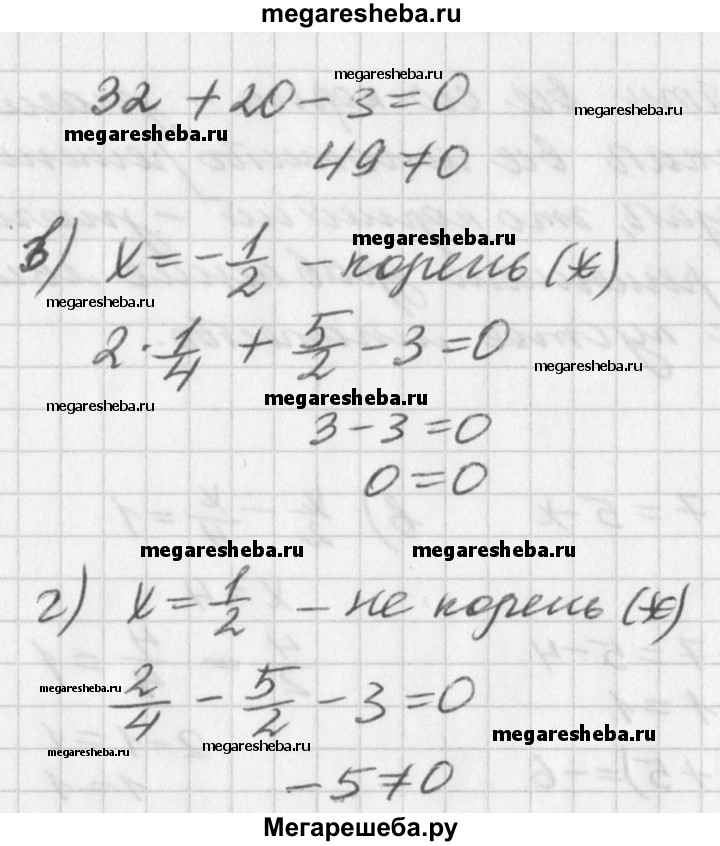 megaresheba.ru
megaresheba.ru
32 + 20 - 3 = 0
megaresheba.ru
megaresheba.ru
49 ≠ 0
megaresheba.ru
в) x = -1/2 - корень (*)
megaresheba.ru
2 · 1/4 + 5/2 - 3 = 0
megaresheba.ru
megaresheba.ru
megaresheba.ru
3 - 3 = 0
0 = 0
megaresheba.ru
megaresheba.ru
г) x = 1/2 - не корень (*)
megaresheba.ru
2/4 - 5/2 - 3 = 0
megaresheba.ru
megaresheba.ru
megaresheba.ru
-5 ≠ 0
Мегарешеба.ру